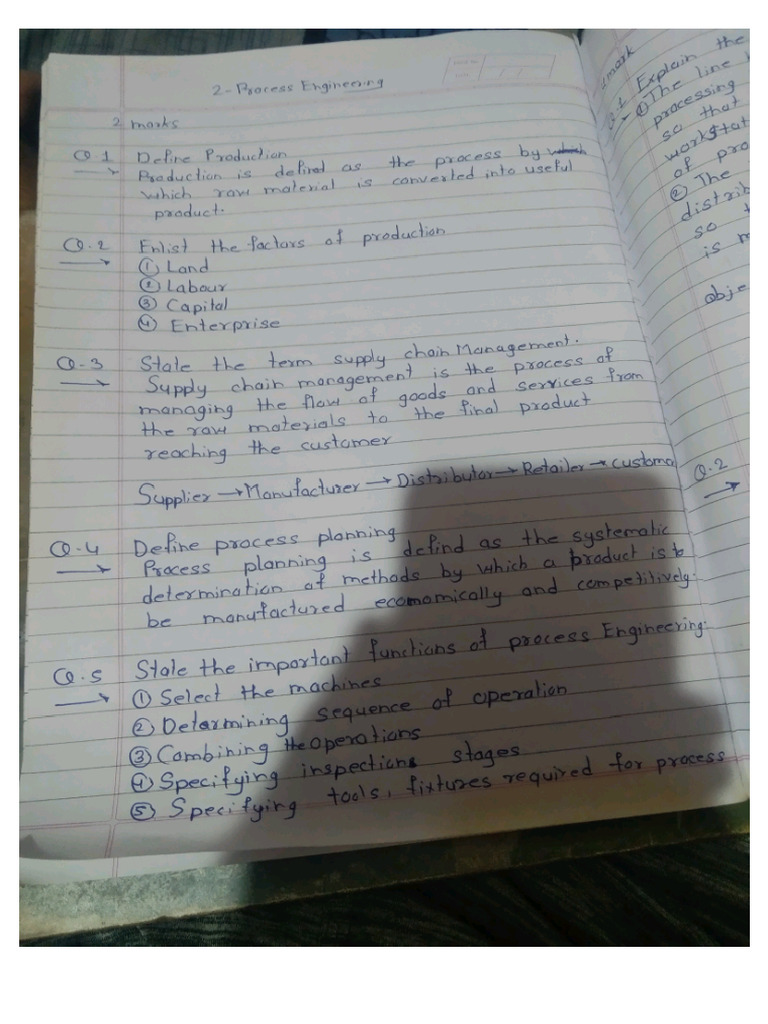 2-Process Engineering
2 marks
Q.1 Define Production
→ Production is defind as the process by which
which raw material is converted into useful
product.
Q.2 Enlist the factors of production
→ ① Land
② Labour
③ Capital
④ Enterprise
Q.3 State the term supply chain Management.
→ Supply chain management is the process of
managing the flow of goods and services from
the raw materials to the final product
reaching the customer
Supplier → Manufacturer → Distributor → Retailer → customer
Q.4 Define process planning
→ Process planning is defind as the systematic
determination of methods by which a product is to
be manufactured economically and competitively.
Q.5 State the important functions of process Engineering.
→ ① Select the machines
② Determining sequence of operation
③ Combining the operations
④ Specifying inspection stages
⑤ Specifying tools, fixtures required for process
mark
Explain the
① The line
processing
so that
of pro
② The
distrib
so
is m
obje
Q.2
→